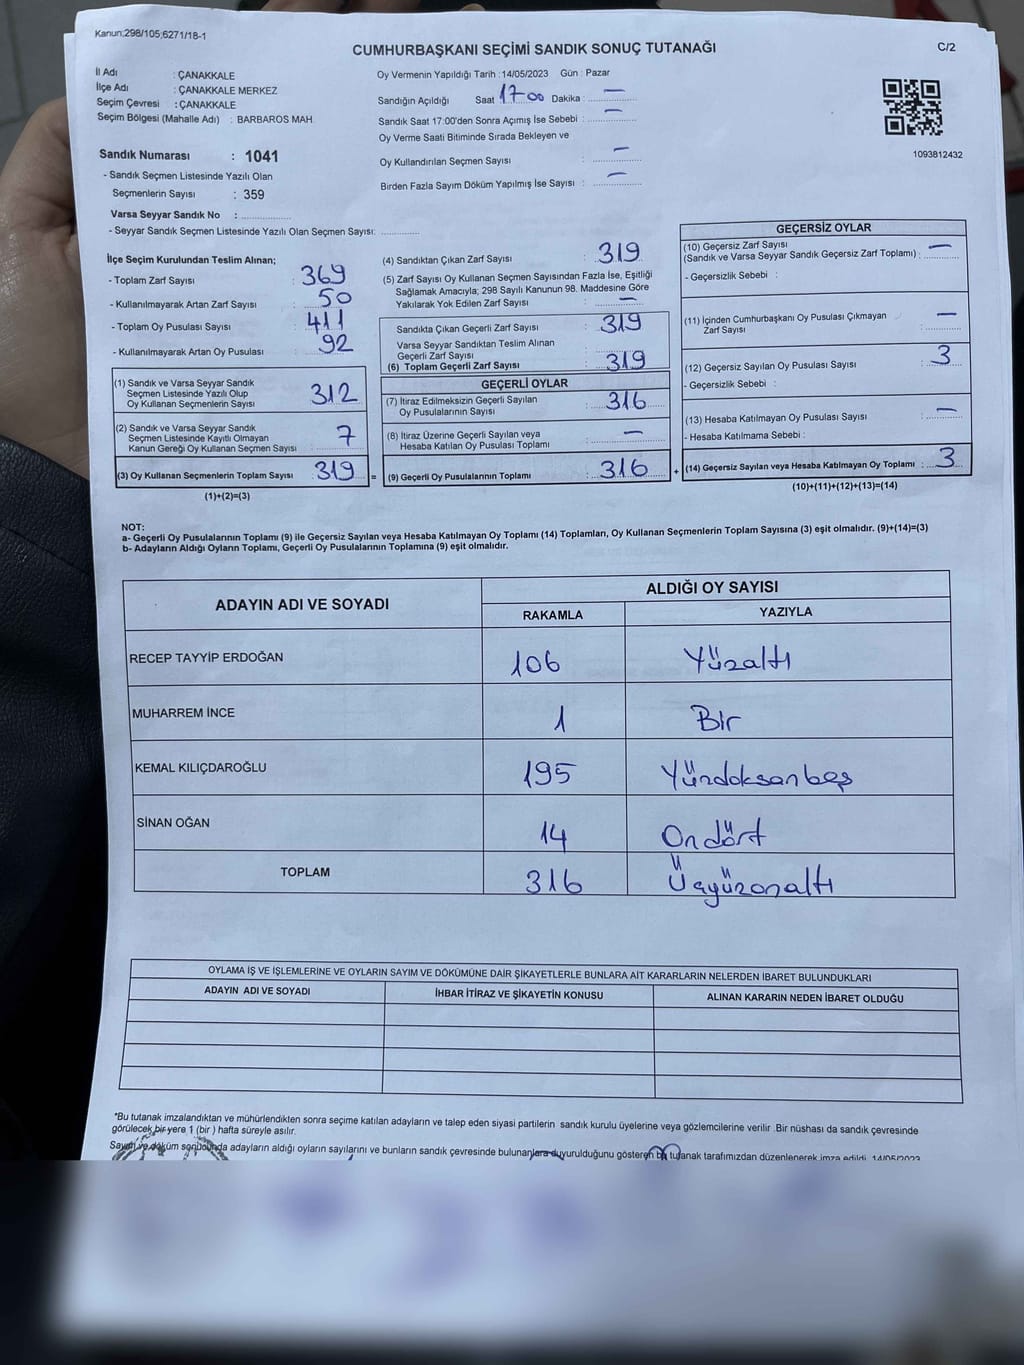 Kanun:298/105;6271/18-1
CUMHURBAŞKANI SEÇİMİ SANDIK SONUÇ TUTANAĞI
C/2
İl Adı : ÇANAKKALE
İlçe Adı : ÇANAKKALE MERKEZ
Seçim Çevresi : ÇANAKKALE
Seçim Bölgesi (Mahalle Adı) : BARBAROS MAH
Sandık Numarası : 1041
- Sandık Seçmen Listesinde Yazılı Olan
Seçmenlerin Sayısı : 359
Varsa Seyyar Sandık No :
- Seyyar Sandık Seçmen Listesinde Yazılı Olan Seçmen Sayısı:
Oy Vermenin Yapıldığı Tarih :14/05/2023 Gün : Pazar
Sandığın Açıldığı Saat 17 00 Dakika : —
Sandık Saat 17:00'den Sonra Açımış İse Sebebi : —
Oy Verme Saati Bitiminde Sırada Bekleyen ve
Oy Kullandırılan Seçmen Sayısı : —
Birden Fazla Sayım Döküm Yapılmış İse Sayısı : —
1093812432
İlçe Seçim Kurulundan Teslim Alınan;
- Toplam Zarf Sayısı : 369
- Kullanılmayarak Artan Zarf Sayısı : 50
- Toplam Oy Pusulası Sayısı : 411
- Kullanılmayarak Artan Oy Pusulası : 92
(1) Sandık ve Varsa Seyyar Sandık
Seçmen Listesinde Yazılı Olup
Oy Kullanan Seçmenlerin Sayısı : 312
(2) Sandık ve Varsa Seyyar Sandık
Seçmen Listesinde Kayıtlı Olmayan
Kanun Gereği Oy Kullanan Seçmen Sayısı : 7
(3) Oy Kullanan Seçmenlerin Toplam Sayısı : 319 =
(1)+(2)=(3)
(4) Sandıktan Çıkan Zarf Sayısı : 319
(5) Zarf Sayısı Oy Kullanan Seçmen Sayısından Fazla İse, Eşitliği
Sağlamak Amacıyla; 298 Sayılı Kanunun 98. Maddesine Göre
Yakılarak Yok Edilen Zarf Sayısı : —
Sandıkta Çıkan Geçerli Zarf Sayısı : 319
Varsa Seyyar Sandıktan Teslim Alınan
Geçerli Zarf Sayısı :
(6) Toplam Geçerli Zarf Sayısı : 319
GEÇERLİ OYLAR
(7) İtiraz Edilmeksizin Geçerli Sayılan
Oy Pusulalarının Sayısı : 316
(8) İtiraz Üzerine Geçerli Sayılan veya
Hesaba Katılan Oy Pusulası Toplamı : —
(9) Geçerli Oy Pusulalarının Toplamı : 316 +
GEÇERSİZ OYLAR
(10) Geçersiz Zarf Sayısı
(Sandık ve Varsa Seyyar Sandık Geçersiz Zarf Toplamı) : —
- Geçersizlik Sebebi :
(11) İçinden Cumhurbaşkanı Oy Pusulası Çıkmayan
Zarf Sayısı : —
(12) Geçersiz Sayılan Oy Pusulası Sayısı : 3
- Geçersizlik Sebebi :
(13) Hesaba Katılmayan Oy Pusulası Sayısı : —
- Hesaba Katılmama Sebebi :
(14) Geçersiz Sayılan veya Hesaba Katılmayan Oy Toplamı : 3
(10)+(11)+(12)+(13)=(14)
NOT:
a- Geçerli Oy Pusulalarının Toplamı (9) ile Geçersiz Sayılan veya Hesaba Katılmayan Oy Toplamı (14) Toplamları, Oy Kullanan Seçmenlerin Toplam Sayısına (3) eşit olmalıdır. (9)+(14)=(3)
b- Adayların Aldığı Oyların Toplamı, Geçerli Oy Pusulalarının Toplamına (9) eşit olmalıdır.
ADAYIN ADI VE SOYADI
ALDIĞI OY SAYISI
RAKAMLA YAZIYLA
RECEP TAYYİP ERDOĞAN 106 Yüzaltı
MUHARREM İNCE 1 Bir
KEMAL KILIÇDAROĞLU 195 Yüzdoksanbeş
SİNAN OĞAN 14 Ondört
TOPLAM 316 Üçyüzonaltı
OYLAMA İŞ VE İŞLEMLERİNE VE OYLARIN SAYIM VE DÖKÜMÜNE DAİR ŞİKAYETLERLE BUNLARA AİT KARARLARIN NELERDEN İBARET BULUNDUKLARI
ADAYIN ADI VE SOYADI İHBAR İTİRAZ VE ŞİKAYETİN KONUSU ALINAN KARARIN NEDEN İBARET OLDUĞU
*Bu tutanak imzalandıktan ve mühürlendikten sonra seçime katılan adayların ve talep eden siyasi partilerin sandık kurulu üyelerine veya gözlemcilerine verilir .Bir nüshası da sandık çevresinde
görülecek bir yere 1 (bir ) hafta süreyle asılır.
Sayım ve döküm sonucunda adayların aldığı oyların sayılarını ve bunların sandık çevresinde bulunanlara duyurulduğunu gösteren bu tutanak tarafımızdan düzenlenerek imza edildi. 14/05/2023